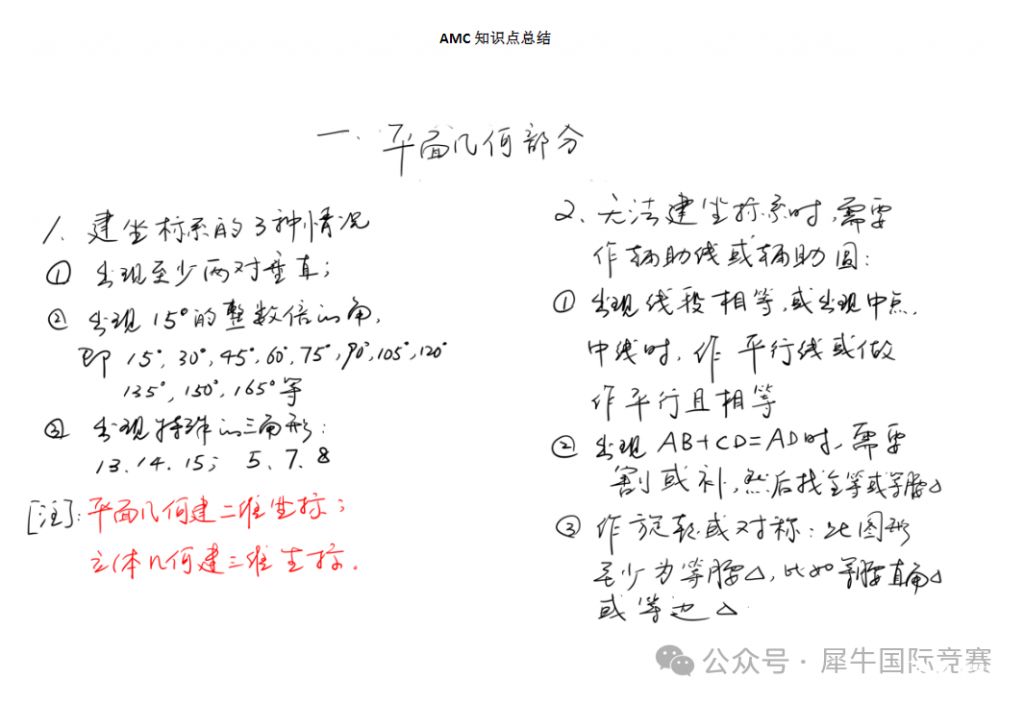 AMC 知识点总结
一. 平面几何部分
1. 建坐标系的3种情况
① 出现至少两对垂直;
② 出现15°的整数倍的角,
即 15°, 30°, 45°, 60°, 75°, 90°, 105°, 120°
135°, 150°, 165°等
③ 出现特殊的三角形:
13. 14. 15; 5. 7. 8
[注]: 平面几何建二维坐标;
立体几何建三维坐标.
2. 无法建坐标系时, 需要
作辅助线或辅助圆:
① 出现线段相等, 或出现中点.
中线时, 作 平行线或做
作平行且相等
② 出现 AB+CD=AD时, 需要
割或补, 然后找全等或等腰△
③ 作旋转或对称: 此图形
至少为等腰△, 比如等腰直角△
或等边△
公众号·犀牛国际竞赛